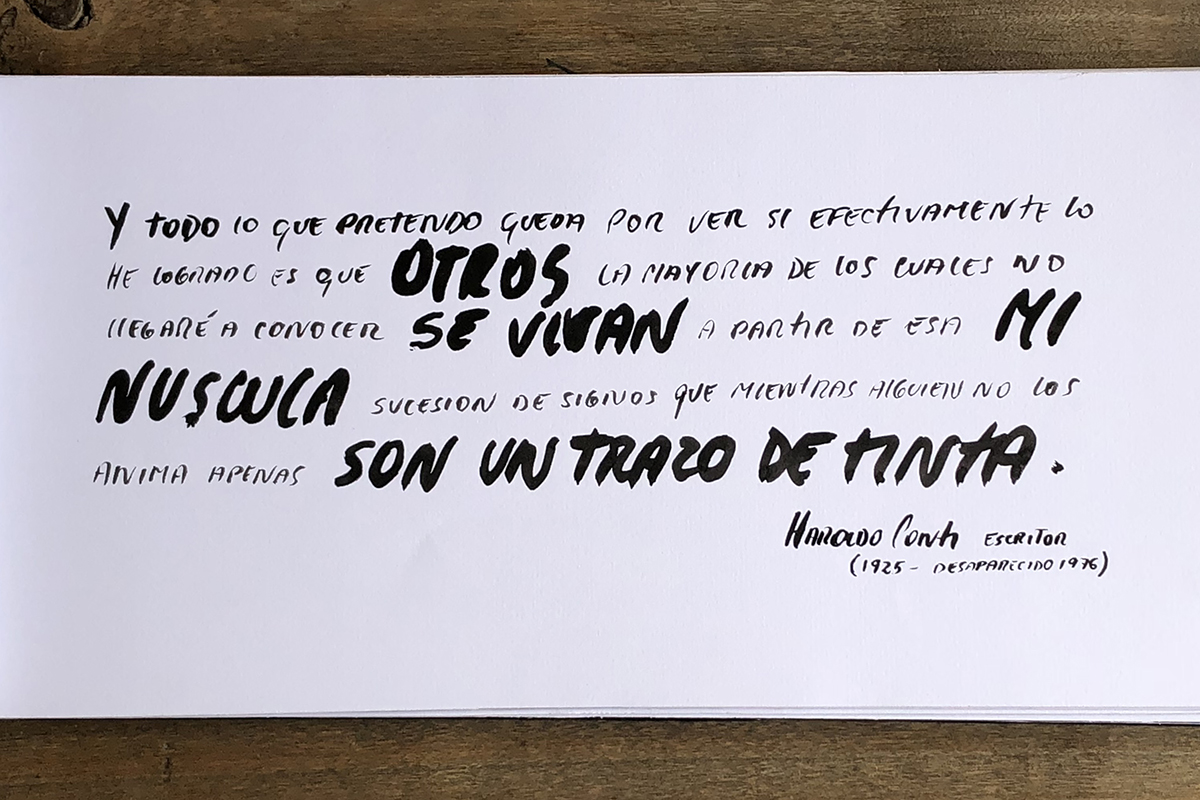 Y TODO LO QUE PRETENDO QUEDA POR VER SI EFECTIVAMENTE LO
HE LOGRADO ES QUE OTROS LA MAYORIA DE LOS CUALES NO
LLEGARÉ A CONOCER SE VIVAN A PARTIR DE ESA MI
NUSCULA SUCESION DE SIGNOS QUE MIENTRAS ALGUIEN NO LOS
ANIMA APENAS SON UN TRAZO DE TINTA.
HAROLDO CONTI ESCRITOR
(1925 - DESAPARECIDO 1976)